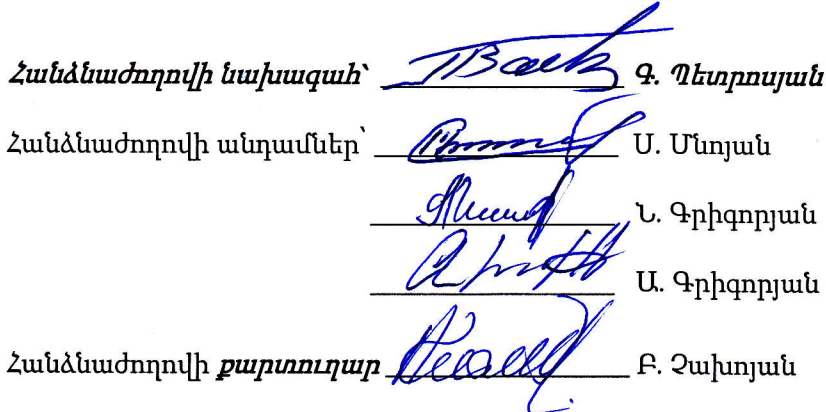 Հանձնաժողովի նախագահ՝ Գ. Պետրոսյան
Հանձնաժողովի անդամներ՝ Ս. Մնոյան
Ն. Գրիգորյան
Ա. Գրիգորյան
Հանձնաժողովի քարտուղար Բ. Չախոյան